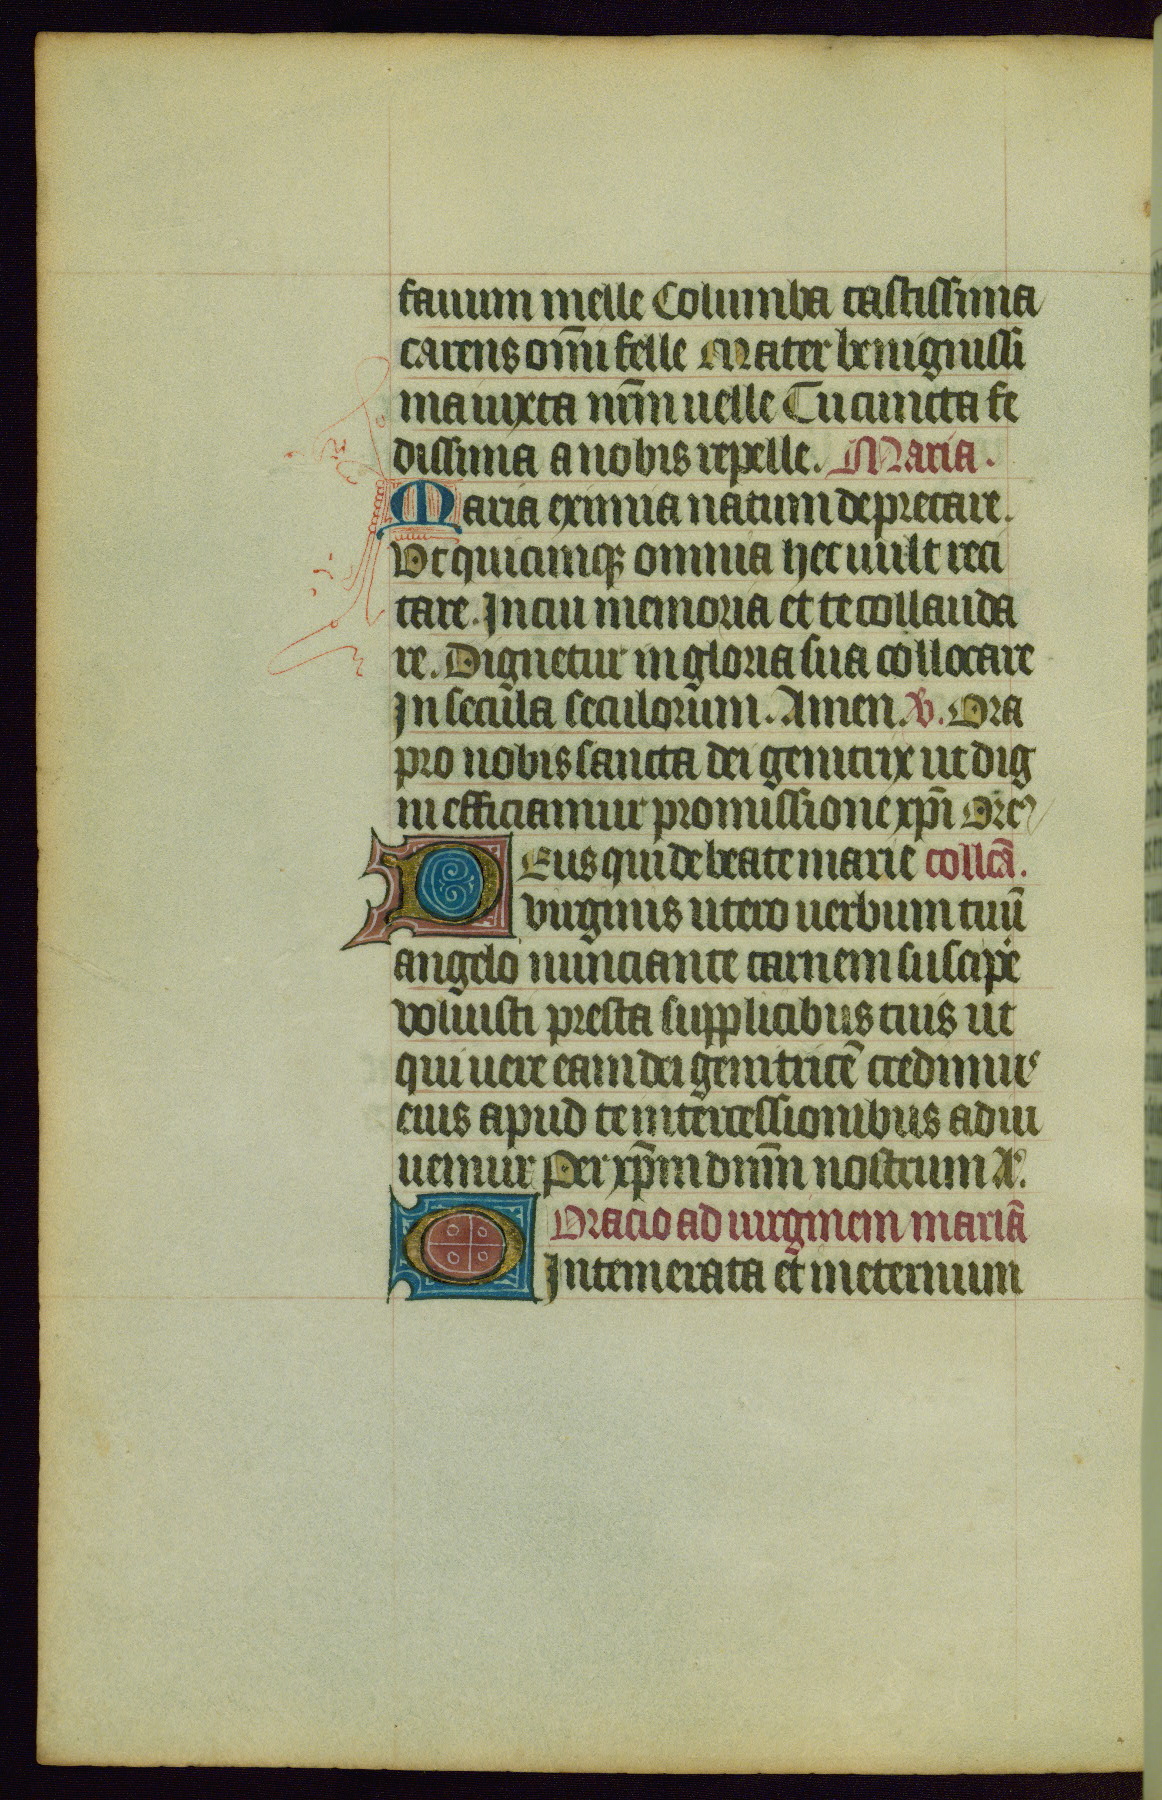 fauum melle Columba castissima
carens om̄i felle Mater benignissi
ma iuxta nr̄m uelle Tu cuncta fe
dissima a nobis repelle. Maria.
Maria eximia natum deprecare.
Ut quicunqꝫ omnia hec uult reci
tare. In eiu memoria et te collauda
re. Dignetur in gloria sua collocare
In secula seculorum. Amen. ℣. Ora
pro nobis sancta dei genitrix ut dig
ni efficiamur promissione xp̄i Ore
Deus qui de beate marie collcā.
virginis utero uerbum tuū
angelo nunciante carnem suscipe
voluisti presta supplicibus tuis ut
qui uere eam dei genitricē credimuꝰ
eius apud te intercessionibus adiu
uemur Per xp̄m dn̄m nostrum A.
Oracio ad uirginem mariā
O Intemerata et in eternum